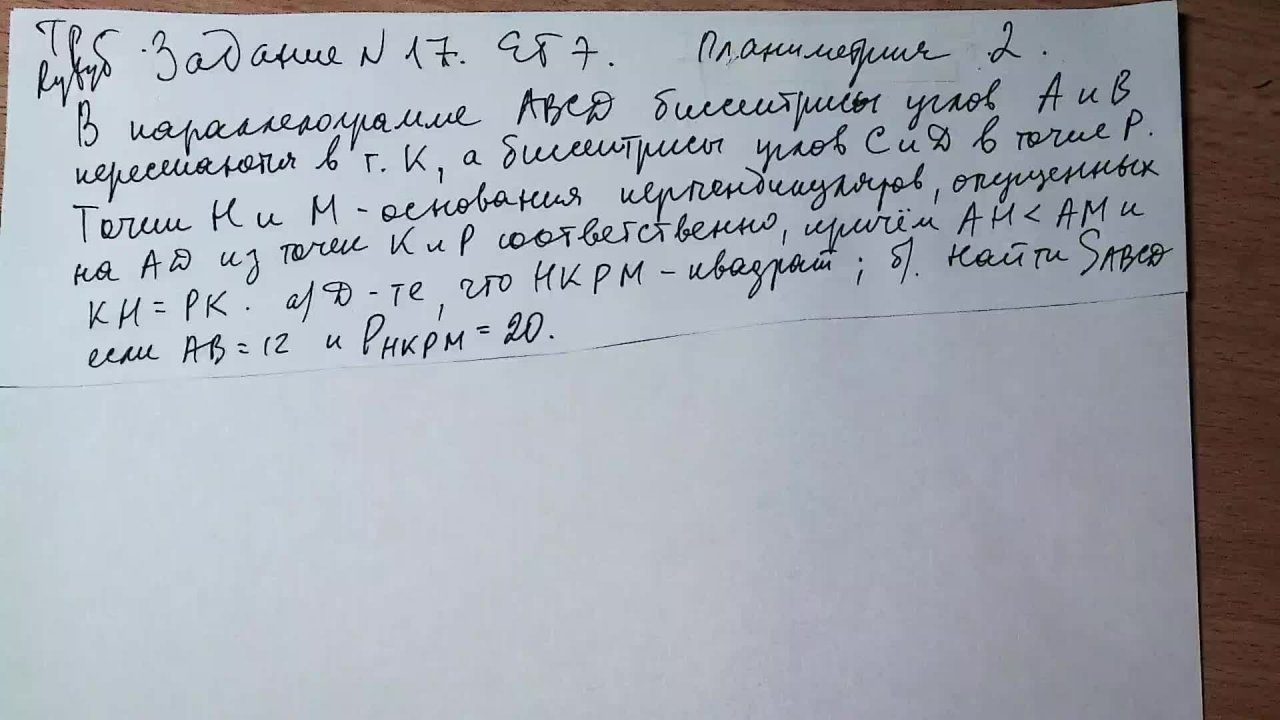 Задание N 17. ЕГЭ. Планиметрия 2.
В параллелограмме ABCD биссектрисы углов A и B
пересекаются в т. K, а биссектрисы углов C и D в точке P.
Точки H и M - основания перпендикуляров, опущенных
на AD из точек K и P соответственно, причём AH < AM и
KH = PK. а) Д-те, что HKPM - квадрат; б). Найти SABCD
если AB = 12 и PHKPM = 20.